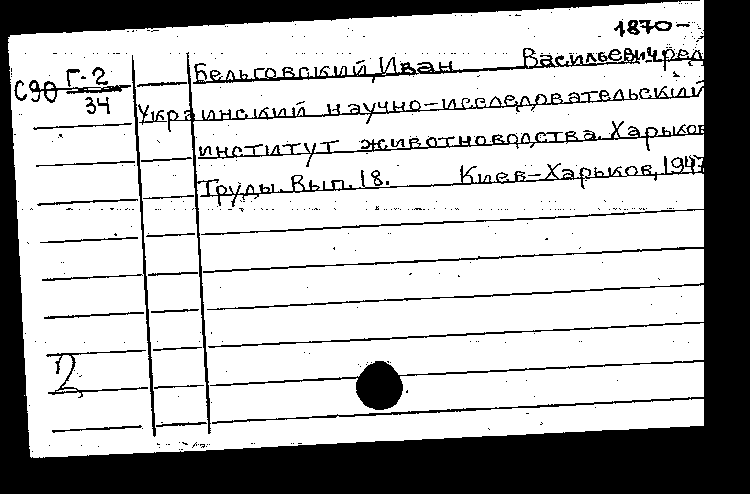 1870-
С90 Г-2 Бельговский, Иван Васильевич ред
34
Украинский научно-исследовательский
институт животноводства. Харьков
Труды. Вып. 18. Киев-Харьков, 1947
2